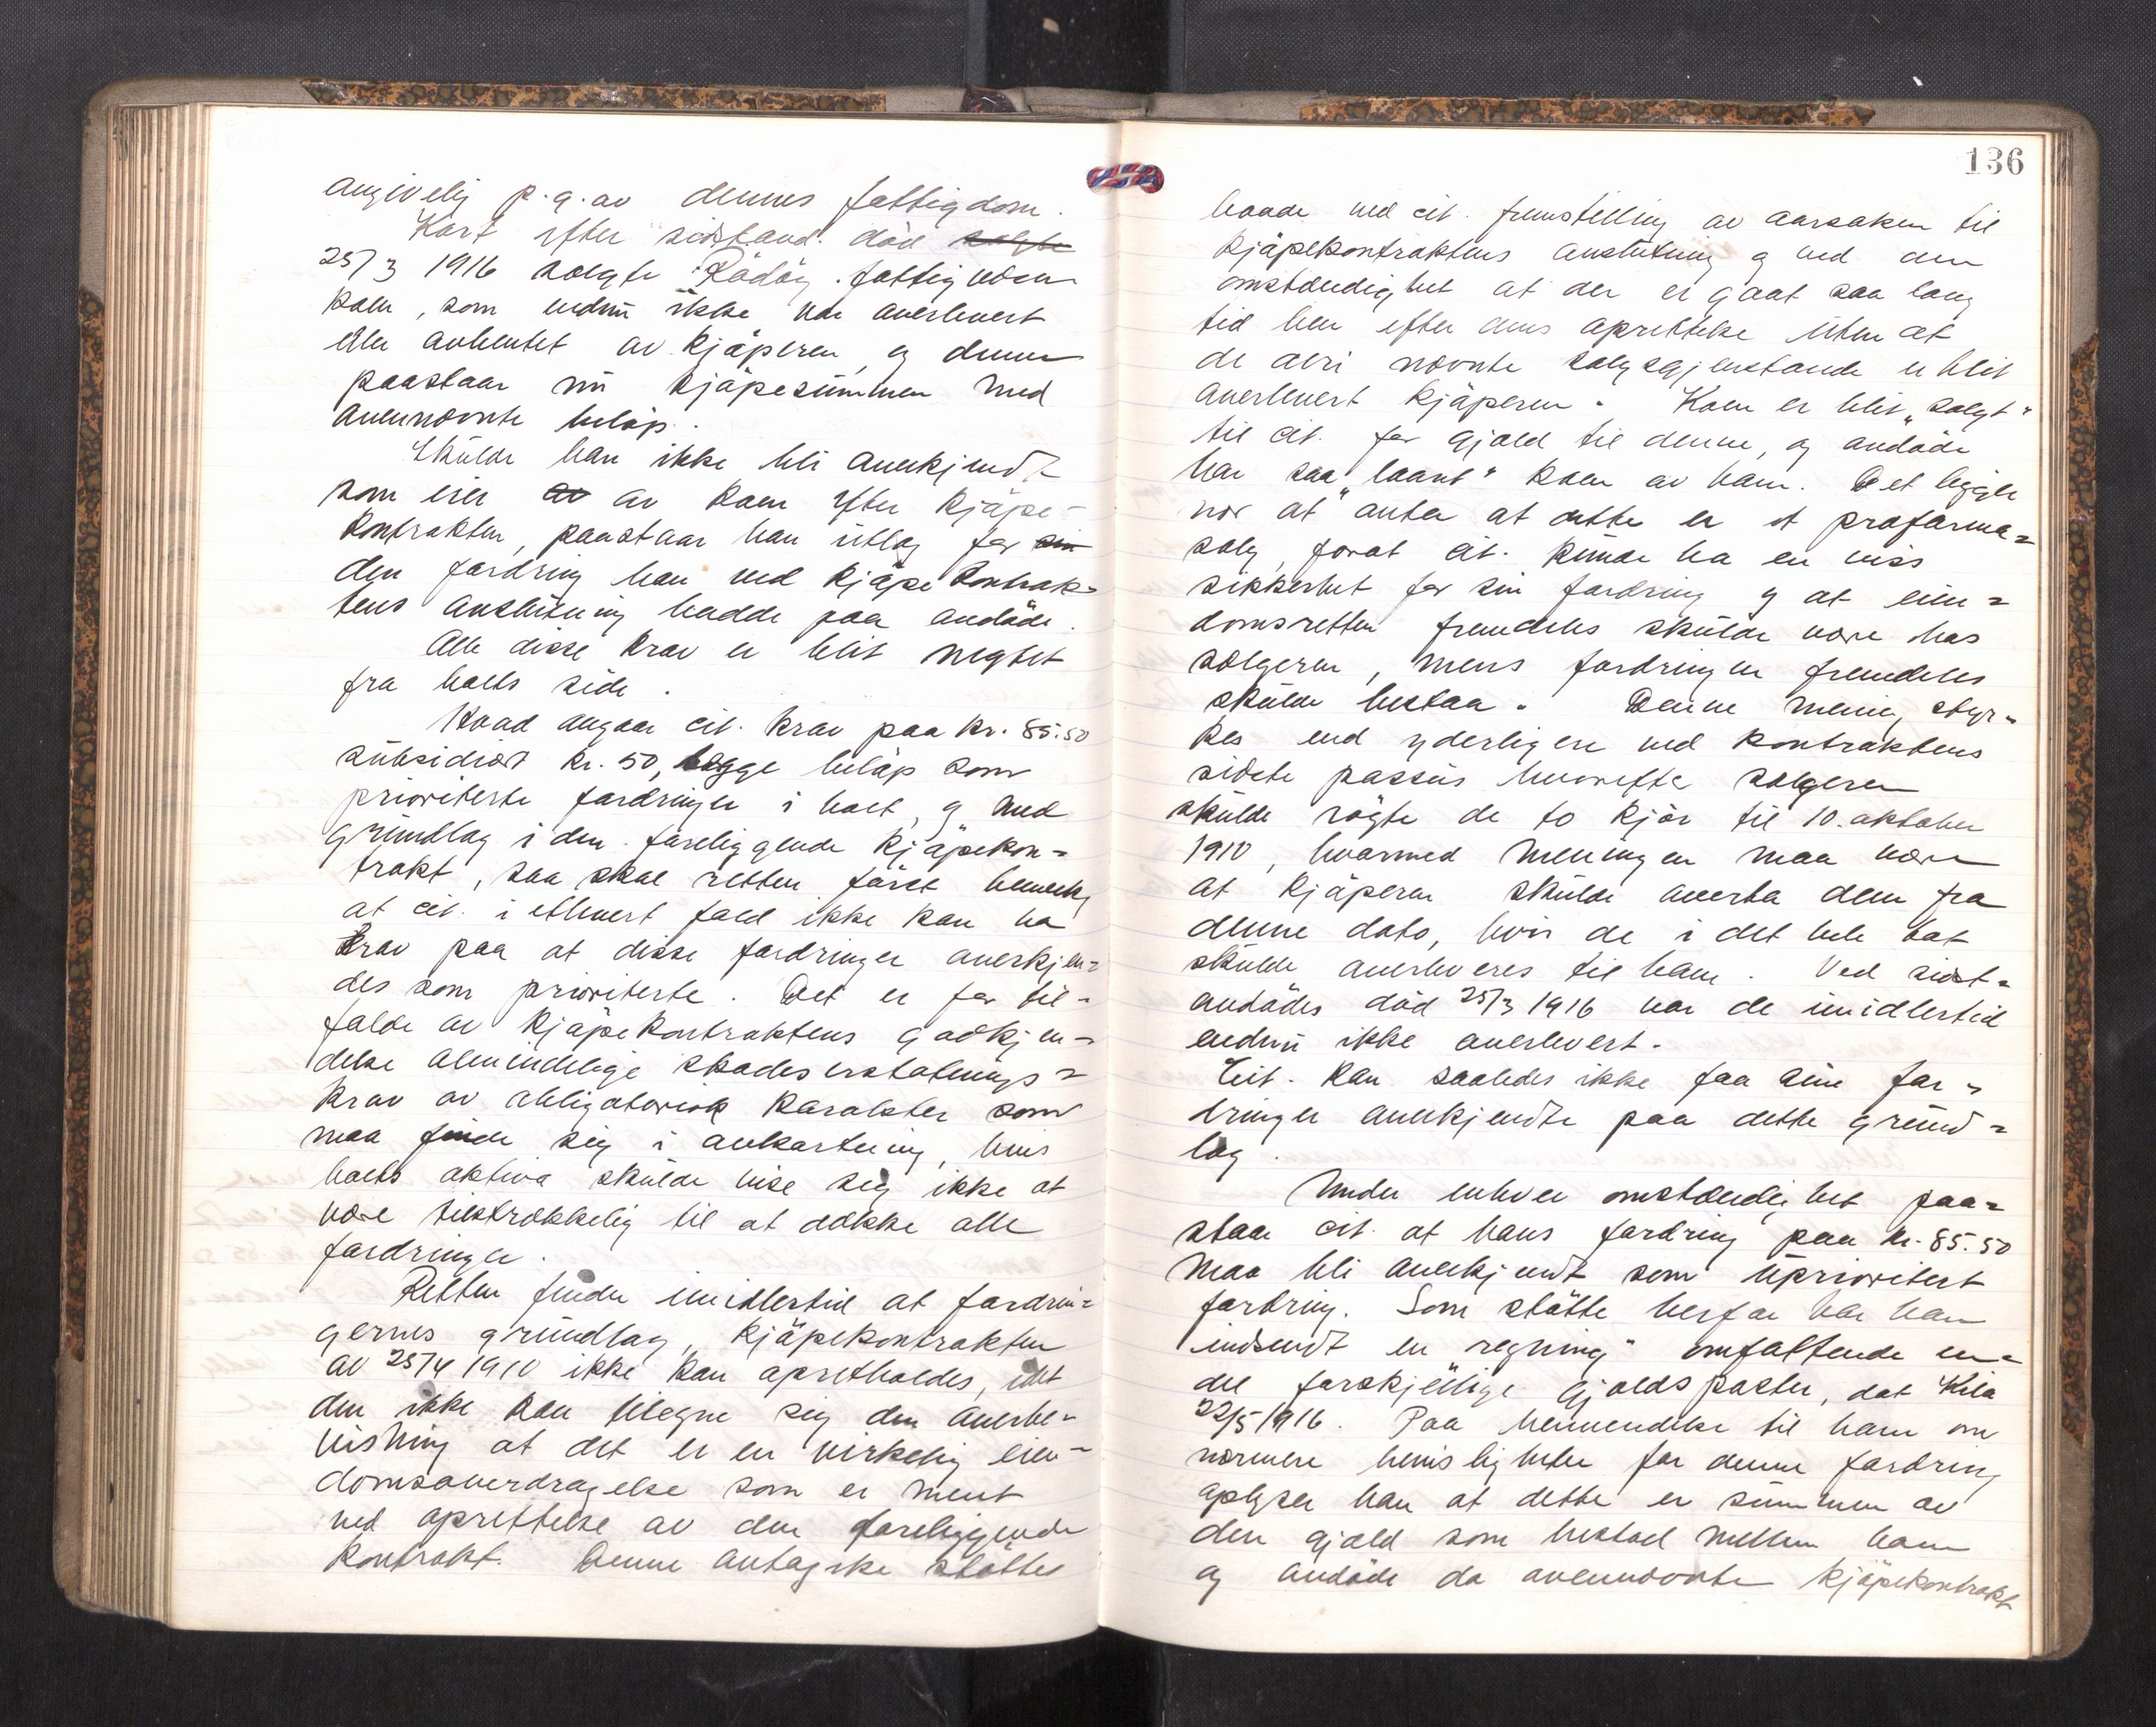 angivelig p.g.av dennes fattigdom.
Kort efter sidstavd. död solgte
25/3 1916 solgte Rödöy fattigvæsen
koen, som endnu ikke var overlevert
eller avhentet av kjöperen, og denne
paastaar nu kjöpesummen med
ovennævnte belöp.
Skulde han ikke bli anerkjendt
som eier av av koen efter kjöpe-
kontrakten, paastaar han utlæg for sin
den fordring han ved kjöpekontrak-
tens avslutning hadde paa avdöde.
Alle disse krav er blit negtet
fra boets side.
Hvad angaar cit. krav paa kr. 85.50
subsidiært kr. 50, begge belöp som
prioriterte fordringer i boet, og med
grundlag i den foreliggende kjöpekon=
trakt, saa skal retten först bemerke
at cit. i ethvert fald ikke kan ha
krav paa at disse fordringer anerkjen=
des som prioriterte. Det er for til-
fælde av kjöpekontraktens godkjen-
delse almindelige skadeserstatnings=
krav av obligatorisk karakter som
maa finde sig i avkortning, hvis
boets aktiva skulde vise sig ikke at
være tilstrækkelig til at dække alle
fordringer.
Retten finder imidlertid at fordrin=
gernes grundlag, kjöpekontrakten
av 25/4 1910 ikke kan opretholdes, idet
den ikke kan tilegne sig den overbe-
visning at det er en virkelig eien-
domsoverdragelse som er ment
ved oprettelse av den foreliggende
kontrakt. Denne antagelse stöttes
136
baade ved cit. fremstilling av aarsaken til
kjöpekontraktens avslutning og ved den
omstændighet at der er gaat saa lang
tid hen efter dens oprettelse uten at
de deri nævnte salgsgjenstande er blit
overlevert kjöperen. Koen er blit "solgt"
til cit. for gjæld til denne, og avdöde
har saa "laant" koen av ham. Det ligger
nær at anta at dette er et proforma=
salg, forat cit. kunde ha en viss
sikkerhet for sin fordring og at eien=
domsretten fremdeles skulde være hos
sælgeren, mens fordringen fremdeles
skulde bestaa. Denne mening styr=
kes end yderligere ved kontraktens
sidste passus hvorefter sælgeren
skulde rögte de to kjör til 10. oktober
1910, hvormed meningen maa være
at kjöperen skulde overta dem fra
denne dato, hvis de i det hele tat
skulde overleveres til ham. Ved sidst=
avdödes död 25/3 1916 var de imidlertid
endnu ikke overlevert.
Cit. kan saaledes ikke faa sine for=
dringer anerkjendte paa dette grund=
lag.
Under enhver omstændighet paa=
staar cit. at hans fordring paa kr. 85.50
maa bli anerkjendt som uprioritert
fordring. Som stötte herfor har han
indsendt en "regning" omfattende en=
del forskjellige gjældsposter, dat Kila
22/5 1916. Paa henvendelse til ham om
nærmere bevisligheter for denne fordring
oplyser han at dette er summen av
den gjæld som bestod mellem ham
og avdöde da ovennævnte kjöpekontrakt